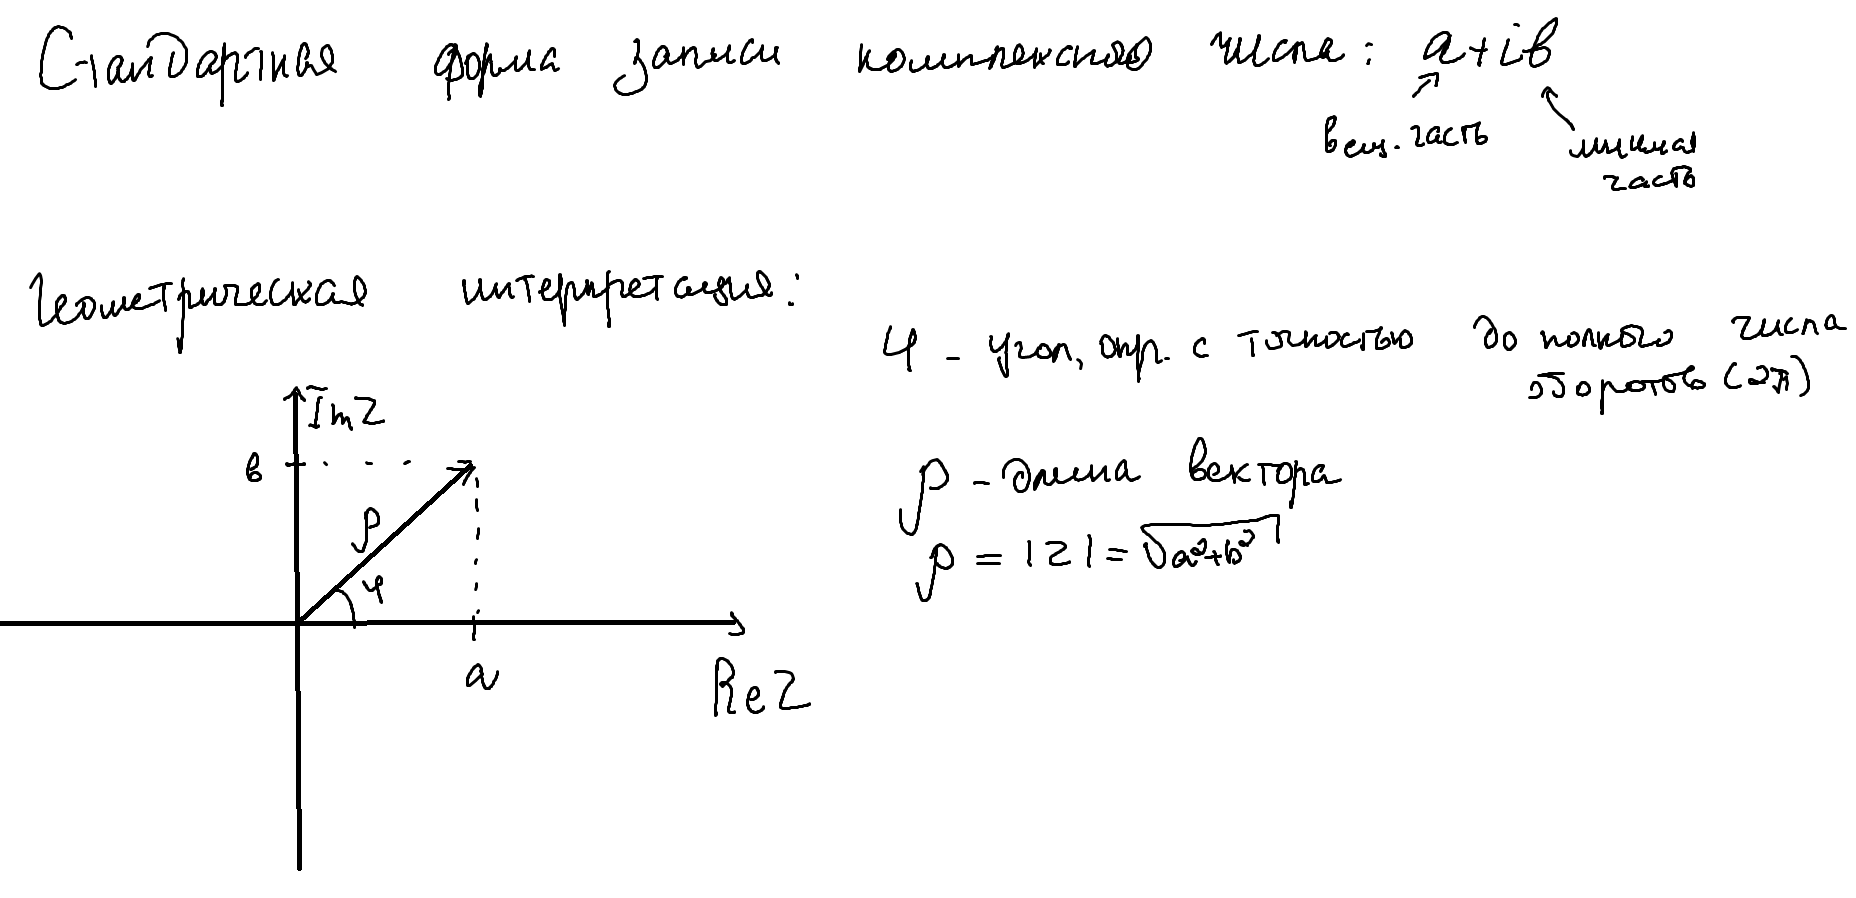 Стандартная форма записи комплексного числа: a+ib
вещ. часть
мнимая
часть
Геометрическая интерпретация:
φ - угол, опр. с точностью до полного числа
оборотов (2π)
Im z
b
ρ - длина вектора
ρ
ρ = |z| = √a²+b²
φ
a
Re z